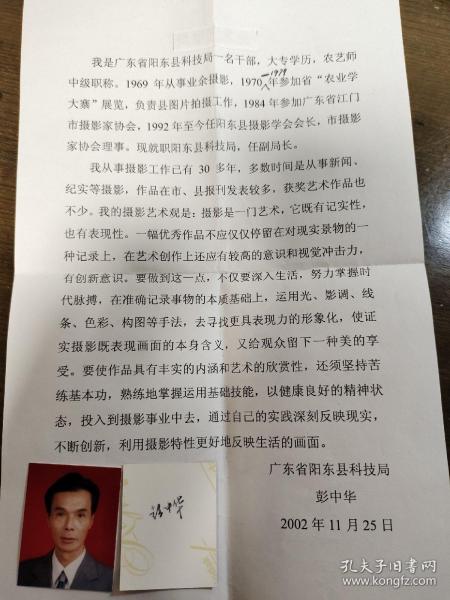 我是广东省阳东县科技局一名干部，大专学历，农艺师
中级职称。1969年从事业余摄影，1970一1979年参加省“农业学
大寨”展览，负责县图片拍摄工作，1984年参加广东省江门
市摄影家协会，1992年至今任阳东县摄影学会会长，市摄影
家协会理事。现就职阳东县科技局，任副局长。
我从事摄影工作已有30多年，多数时间是从事新闻、
纪实等摄影，作品在市、县报刊发表较多，获奖艺术作品也
不少。我的摄影艺术观是：摄影是一门艺术，它既有记实性，
也有表现性。一幅优秀作品不应仅仅停留在对现实景物的一
种记录上，在艺术创作上还应有较高的意识和视觉冲击力，
有创新意识。要做到这一点，不仅要深入生活，努力掌握时
代脉搏，在准确记录事物的本质基础上，运用光、影调、线
条、色彩、构图等手法，去寻找更具表现力的形象化，使证
实摄影既表现画面的本身含义，又给观众留下一种美的享
受。要使作品具有丰实的内涵和艺术的欣赏性，还须坚持苦
练基本功，熟练地掌握运用基础技能，以健康良好的精神状
态，投入到摄影事业中去，通过自己的实践深刻反映现实，
不断创新，利用摄影特性更好地反映生活的画面。
广东省阳东县科技局
彭中华
2002年11月25日
孔夫子旧书网
www.kongfz.com